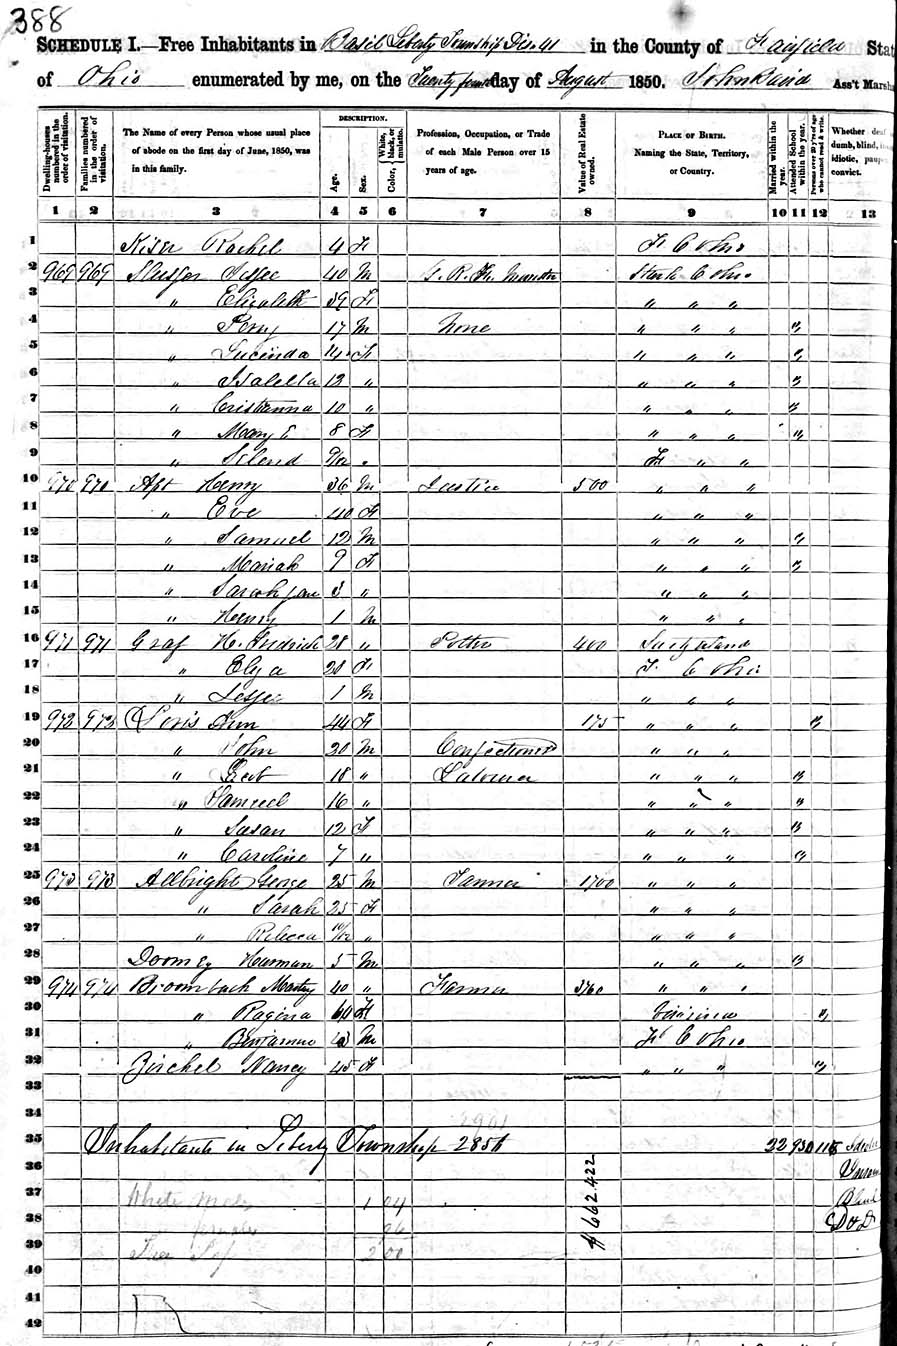 388
SCHEDULE I.—Free Inhabitants in Basil Liberty Township Dis. 41 in the County of Fairfield Stat
of Ohio enumerated by me, on the Twenty day of August 1850. John Ass't Marsha
Dwelling-houses numbered in the order of visitation.
Families numbered in the order of visitation.
The Name of every Person whose usual place of abode on the first day of June, 1850, was in this family.
DESCRIPTION.
Age.
Sex.
Color, White, black, or mulatto.
Profession, Occupation, or Trade of each Male Person over 15 years of age.
Value of Real Estate owned.
PLACE OF BIRTH. Naming the State, Territory, or Country.
Married within the year.
Attended School within the year.
Persons over 20 y'rs of age who cannot read & write.
Whether deaf dumb, blind, idiotic, paup convict.
1 2 3 4 5 6 7 8 9 10 11 12 13
1 Kiser Rachel 4 F F C Ohio
2 969 969 Slusser 40 M Stark C Ohio
3 " Elizabeth 39 F " " "
4 " Perry 17 M None " " " "
5 " Lucinda 14 F " " " "
6 " Isabella 12 " " " " "
7 " Cristianna 10 " " " " "
8 " Mary E 8 F " " " "
9 " 9/12 " F " "
10 970 970 Apt Henry 36 M Justice 500 " " "
11 " Eve 40 F " " "
12 " Samuel 12 M " " " "
13 " Mariah 9 F " " " "
14 " Sarah Jane 3 " " " "
15 " Henry 1 M " " "
16 971 971 Graf H. Fredrick 28 " Potter 400 Switzerland
17 " Eliza 20 F F C Ohio
18 " Jesse 1 M " " "
19 972 972 Ann 44 F 175 " " " "
20 " John 20 M Confectioner " " "
21 " 18 " Laborer " " " "
22 " Samuel 16 " " " " "
23 " Susan 12 F " " " "
24 " Caroline 7 " " " " "
25 973 973 Allbright George 25 M Tanner 1700 " " "
26 " Sarah 25 F " " "
27 " Rebecca 10/12 " " " "
28 Herman 5 M " " " "
29 974 974 Broombach 40 " Farmer " " "
30 " Ragina 60 F Virginia "
31 " Benjamin M F C Ohio
32 Zirchel Nancy 45 F " " " "
33
34
2901
35 Inhabitants in Liberty Township 22 930
36
37 White Males 1 04
38 females 96
39 Free 2 00
40
41
42
$662.422
Blind
D & D